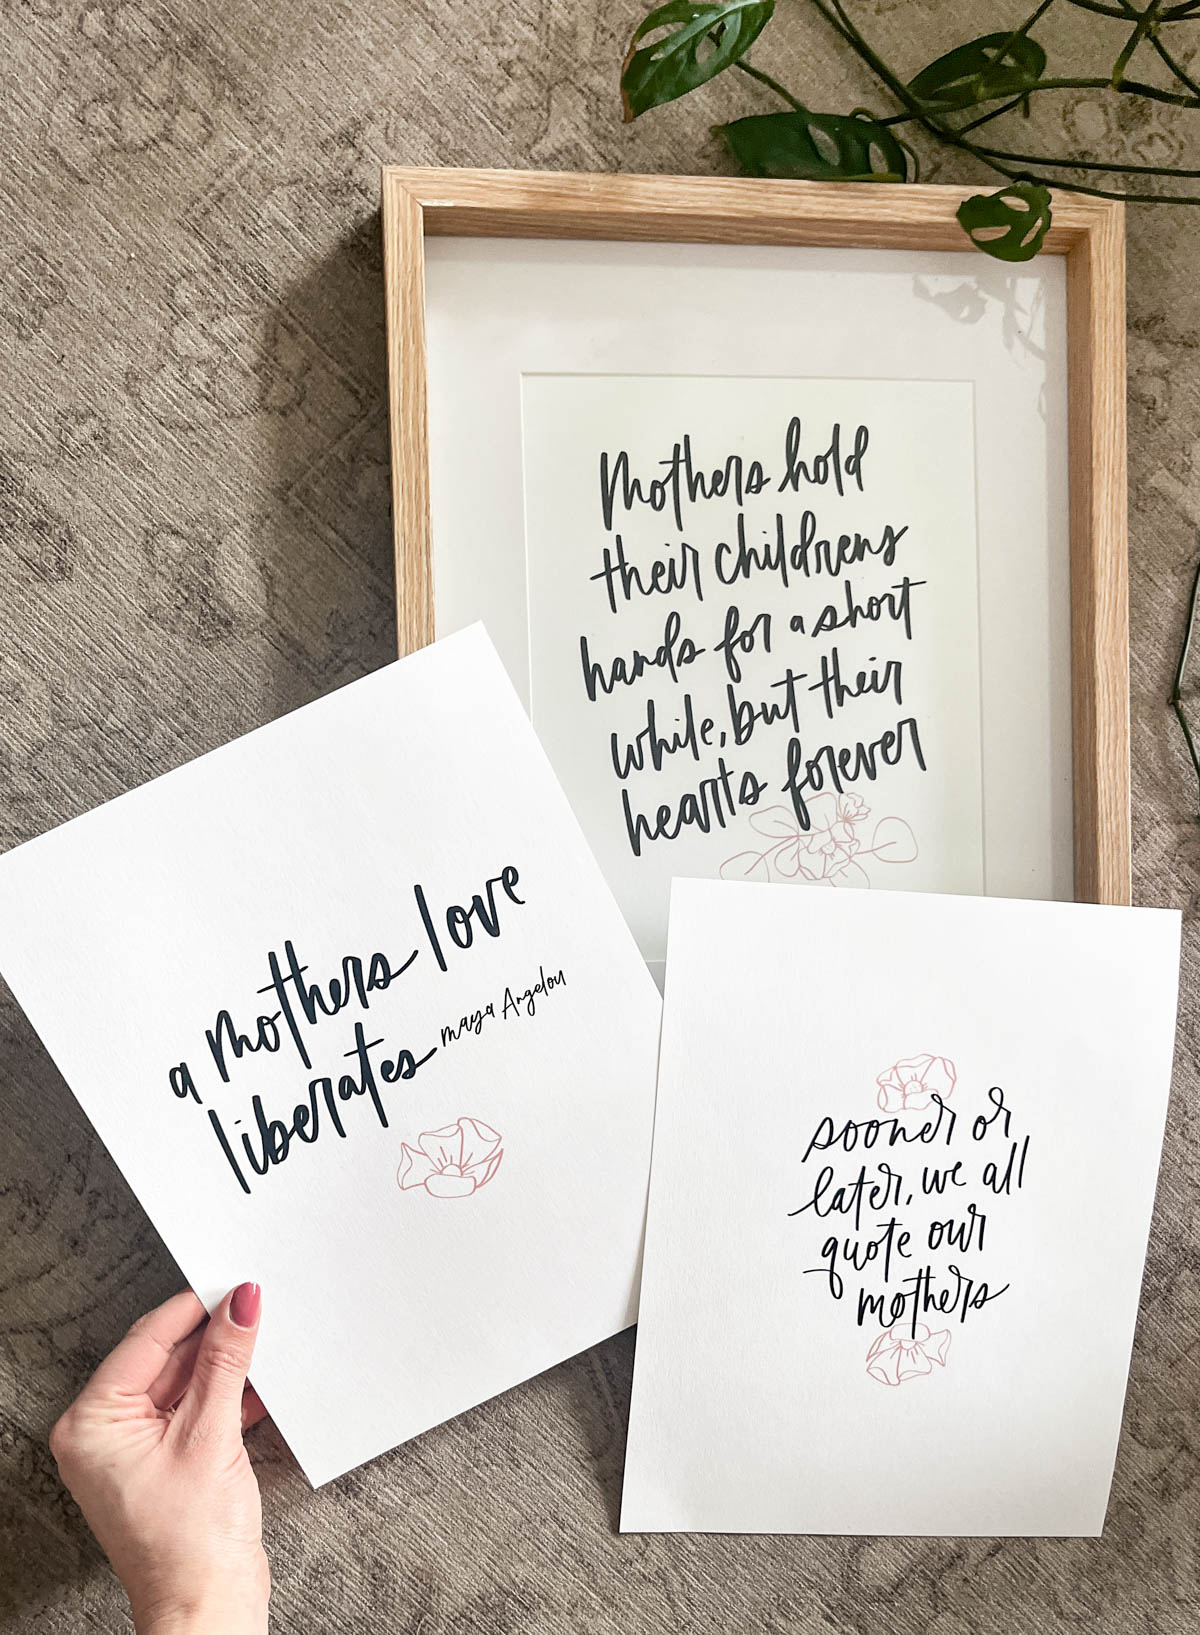 Mothers hold
their childrens
hands for a short
while, but their
hearts forever
a mothers love
liberates maya Angelou
sooner or
later, we all
quote our
mothers